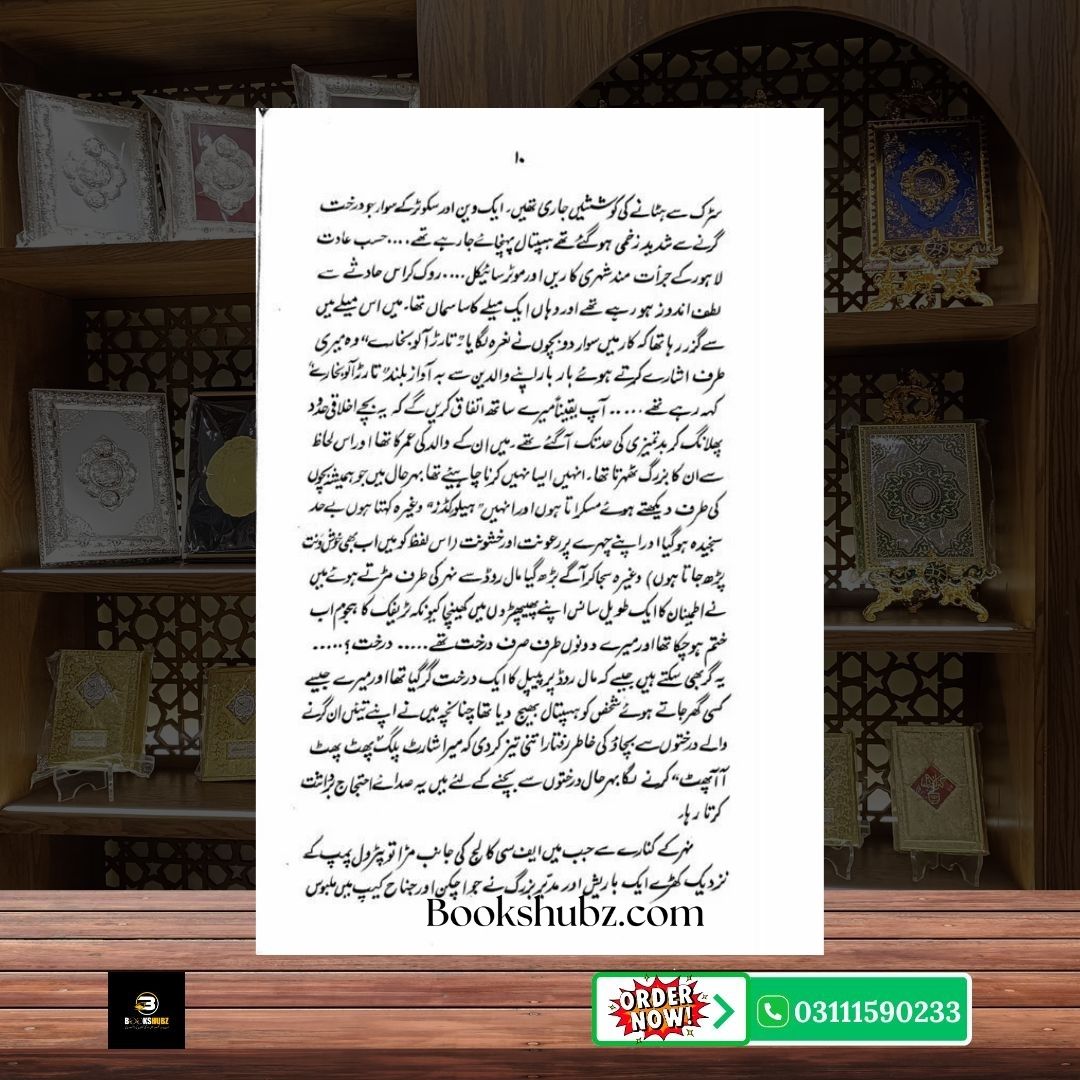 ۱۰
سڑک سے ہٹانے کی کوششیں جاری تھیں۔ ایک وین اور سکوٹر کے سوار جو درخت
گرنے سے شدید زخمی ہو گئے تھے ہسپتال پہنچائے جا رہے تھے.... حسب عادت
لاہور کے جرأت مند شہری کاریں اور موٹر سائیکل.... روک کر اس حادثے سے
لطف اندوز ہو رہے تھے اور وہاں ایک میلے کا سا سماں تھا۔ میں اس میلے میں
سے گزر رہا تھا کہ کار میں سوار دو بچوں نے نعرہ لگایا "تارڑ آلو بخارے" وہ میری
طرف اشارے کرتے ہوئے بار بار اپنے والدین سے بہ آواز بلند "تارڑ آلو بخارے"
کہہ رہے تھے..... آپ یقیناً میرے ساتھ اتفاق کریں گے کہ یہ بچے اخلاقی حدود
پھلانگ کر بدتمیزی کی حد تک آ گئے تھے۔ میں ان کے والد کی عمر کا تھا اور اس لحاظ
سے ان کا بزرگ ٹھہرتا تھا۔ انہیں ایسا نہیں کرنا چاہیئے تھا بہر حال میں جو ہمیشہ بچوں
کی طرف دیکھتے ہوئے مسکراتا ہوں اور انہیں "ہیلو کڈز" وغیرہ کہتا ہوں بے حد
سنجیدہ ہو گیا اور اپنے چہرے پر رعونت اور خشونت (اس لفظ کو میں اب بھی
پڑھ جاتا ہوں) وغیرہ سجا کر آگے بڑھ گیا مال روڈ سے نہر کی طرف مڑتے ہوئے میں
نے اطمینان کا ایک طویل سانس اپنے پھیپھڑوں میں کھینچا کیونکہ ٹریفک کا ہجوم اب
ختم ہو چکا تھا اور میرے دونوں طرف صرف درخت تھے..... درخت؟.....
یہ گر بھی سکتے ہیں جیسے کہ مال روڈ پر پیپل کا ایک درخت گر گیا تھا اور میرے جیسے
کسی گھر جاتے ہوئے شخص کو ہسپتال بھیج دیا تھا چنانچہ میں نے اپنے تیئں ان گرنے
والے درختوں سے بچاؤ کی خاطر رفتار اتنی تیز کر دی کہ میرا شارٹ پلگ "پھٹ پھٹ
آ آ پھٹ" کرنے لگا بہر حال درختوں سے بچنے کے لئے میں یہ صدائے احتجاج برداشت
کرتا رہا۔
نہر کے کنارے سے جب میں ایف سی کالج کی جانب مڑا تو پٹرول پمپ کے
نزدیک کھڑے ایک باریش اور مدبّر بزرگ نے جو اچکن اور جناح کیپ میں ملبوس
Bookshubz.com
BOOKSHUBZ
ORDER NOW!
03111590233